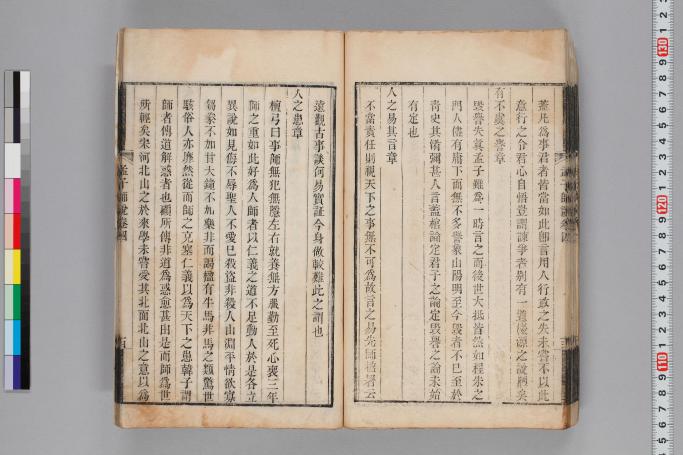 蓋凡爲事君者皆當如此即言用人行政之失未嘗不以此
意行之令君心自悟豈謂諫爭者別有一道後源之說陋矣
有不虞之譽章
毀譽失眞孟子雖爲一時言之而後世大抵皆然如程朱之
門人儘有庸下而無不多譽象山陽明至今毀者不已至於
靑史其淆彌甚人言蓋棺論定君子之論定毀譽之論未始
有定也
人之易其言章
不當責任則視天下之事無不可爲故言之易先師
遠觀古事談何易實証今身做較難此之謂也
人之患章
檀弓曰事師無犯無隱左右就養無方服勤至死心喪三年
師之重如此好爲人師者以仁義之道不足動人於是各立
異說如見侮不辱聖人不愛已殺盜非殺人山淵平情欲寡
芻豢不加甘大鐘不加樂非而謁楹有牛馬非馬之類驚世
駭俗人亦靡然從而師之充塞仁義以爲天下之患韓子謂
師者傳道解惑者也顧所傳非道爲惑愈甚由是而師爲世
所輕矣宋河北山之於來學未嘗受其北面北山之意以爲
孟子師說卷四